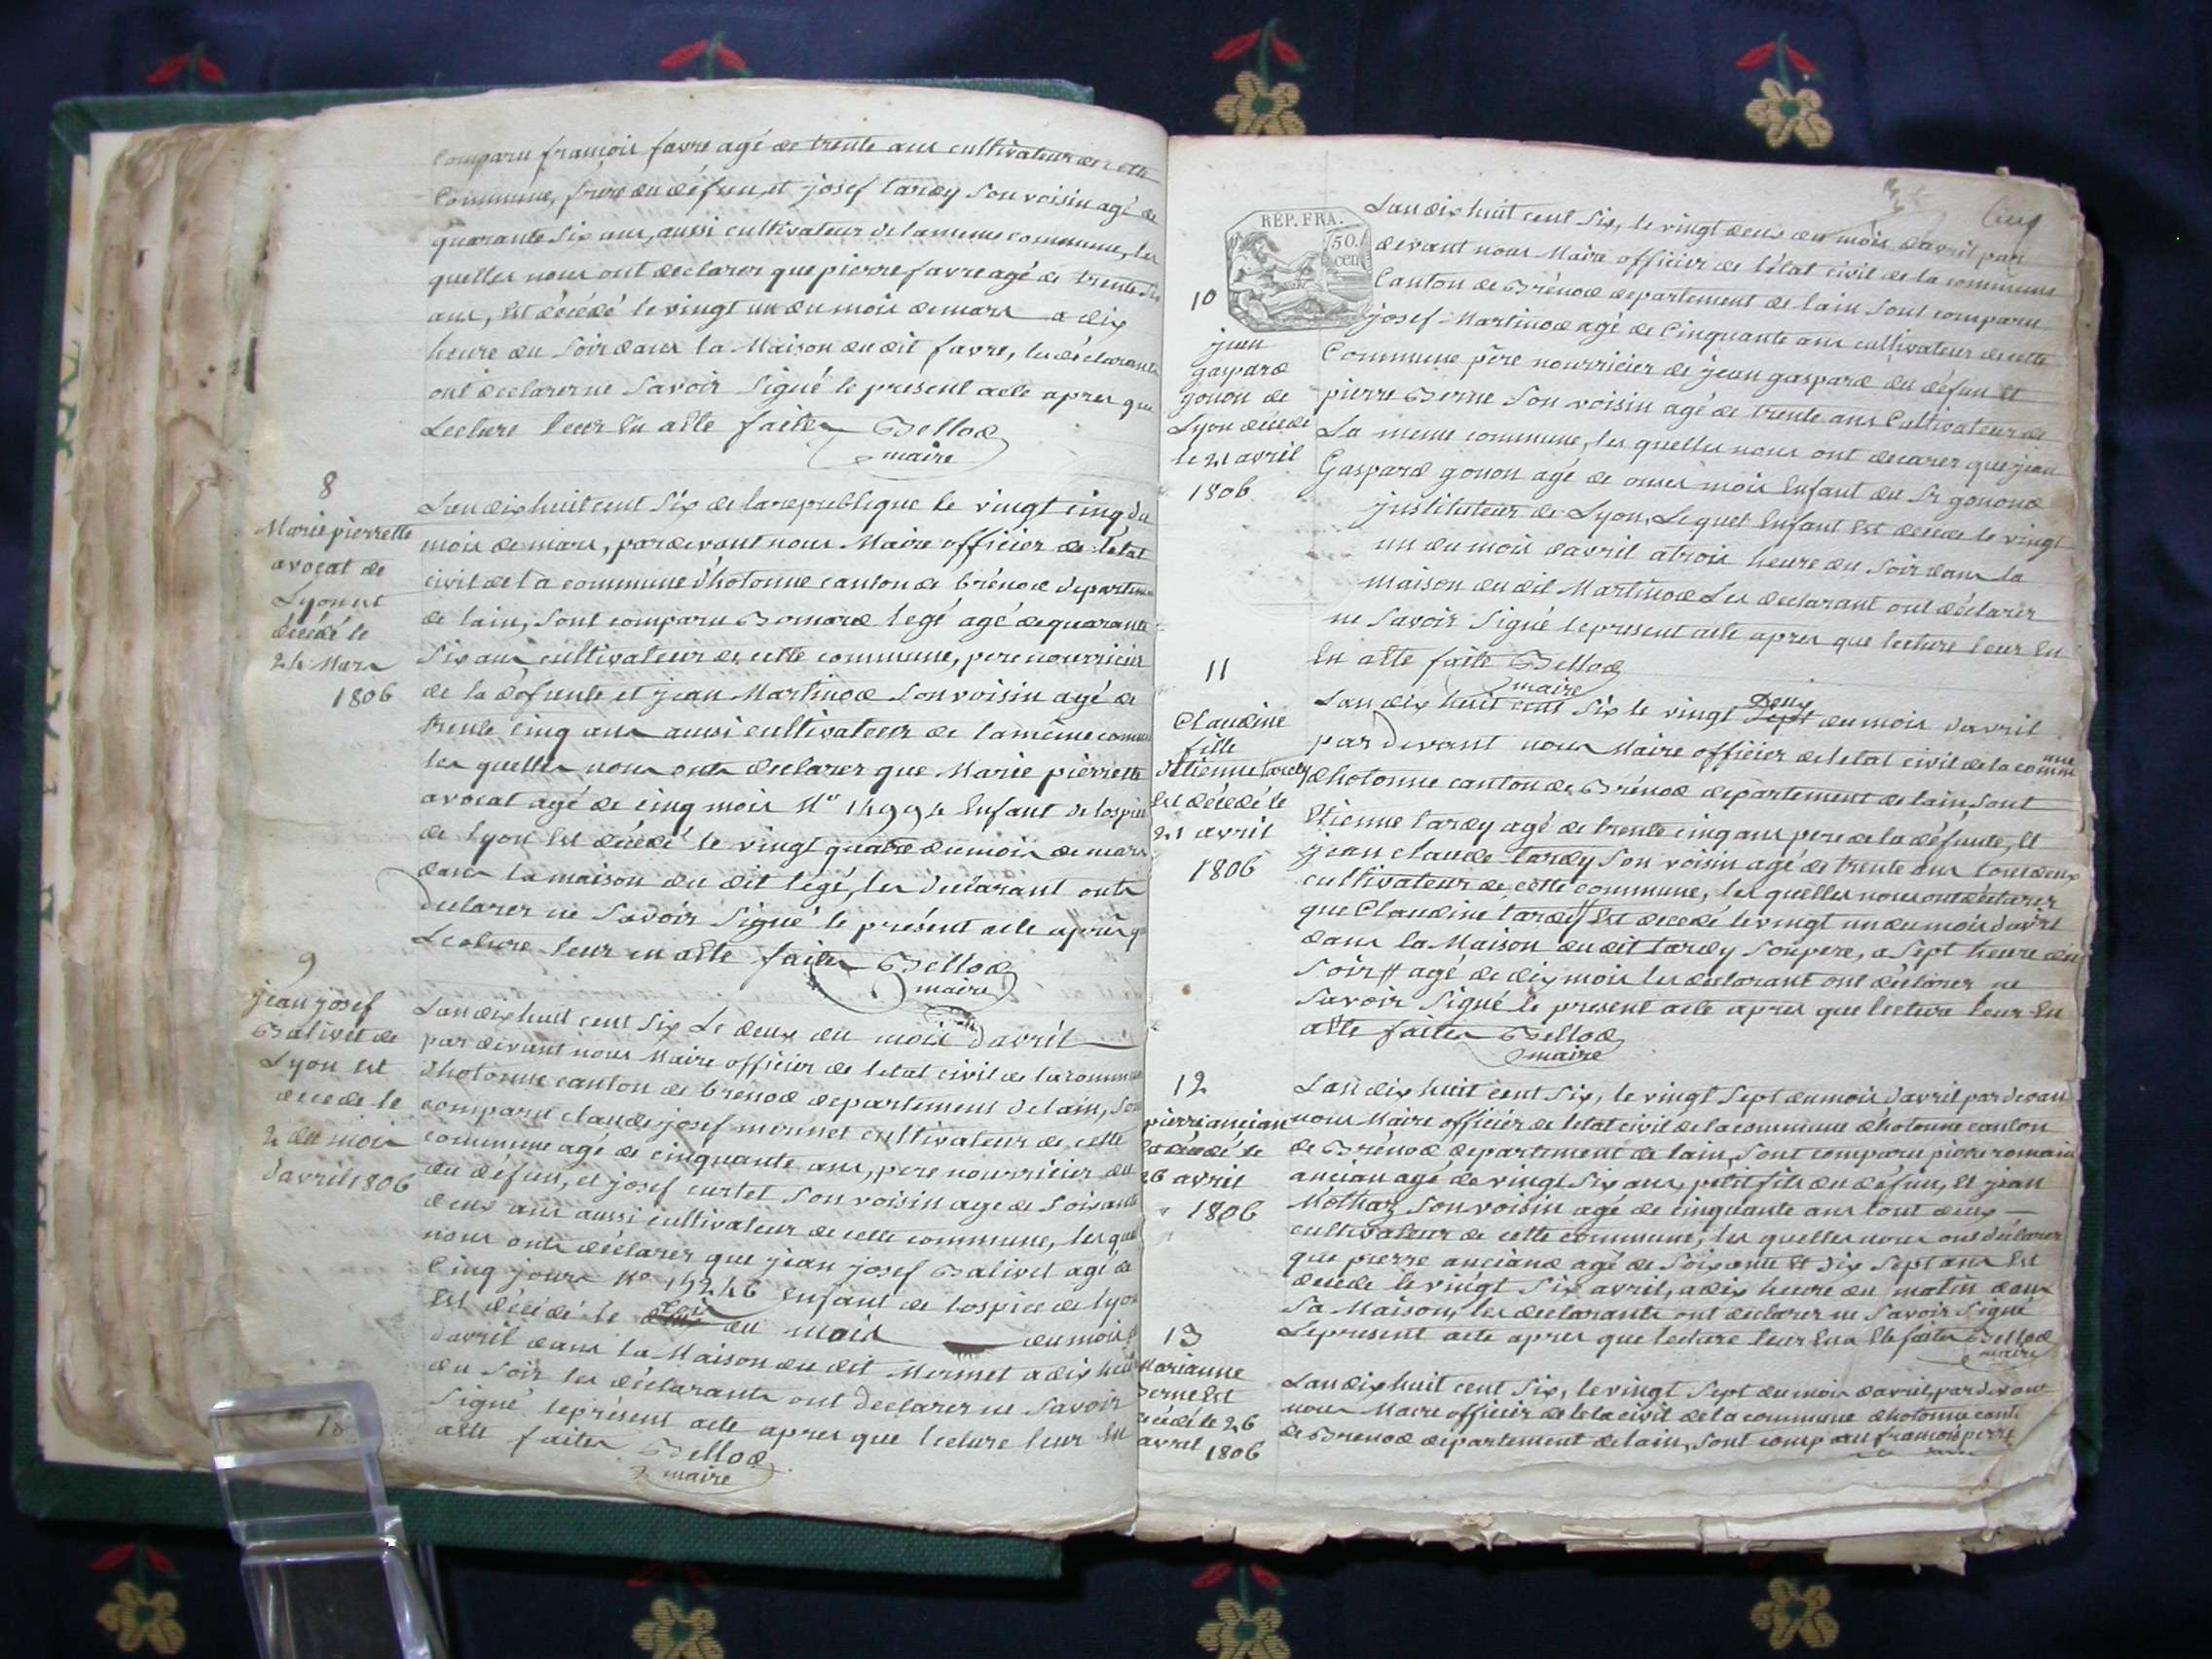 Comparu françois favre agé de trente ans cultivateur de cette
Commune, frere du défun, et josef tardy son voisin agé de
quarante six ans, aussi cultivateur de la meme commune, les
quelles nous ont declarer que pierre favre agé de trente six
ans, est décédé le vingt un du mois de mars a dix
heure du soir dans la Maison du dit favre, les déclarants
ont declarer ne savoir signé le present acte apres que
Lecture leur en a été faite Bellod
maire
8
Marie pierrette
avocat de
Lyon est
décédé le
24 Mars
1806
L'an dix huit cent six de la republique le vingt cinq du
mois de mars, par devant nous Maire officier de l'état
civil de la commune d'hotonne canton de brénod departement
de lain, sont comparu Bornard legé agé de quarante
six ans cultivateur de cette commune, pere nourricier
de la défunte et jean Martinod son voisin agé de
trente cinq ans aussi cultivateur de la même commune
les quelles nous onts declarer que Marie pierrette
avocat agé de cinq mois No 14994 Enfant de lospice
de Lyon Est décédé le vingt quatre du mois de mars
dans la maison du dit légé, les declarant onts
declarer ne savoir signé le présent acte après que
Lecture leur en a été faite Bellod
maire
9
jean josef
Balivet de
Lyon est
decede le
2 du mois
d'avril 1806
L'an dix huit cent six Le deux du mois d'avril
par devant nous Maire officier de letat civil de la commune
d'hotonne canton de brénod departement de lain, sont
comparu claude josef mermet cultivateur de cette
commune agé de cinquante ans, pere nourricier du
du défun, et josef curtet son voisin age de soixante
deux ans aussi cultivateur de cette commune, les quelles
nous onts déclarer que jean josef Balivet agé de
Cinq jours No 15246 Enfant de lospice de lyon
Est décédé le du mois du mois
d'avril dans la Maison du dit Mermet a dix heure
du soir les déclarants ont declarer ne savoir
signé le présent acte apres que lecture leur En
a été faite Bellod
maire
18
Cinq
REP. FRA.
50.
cen
10
jean
gaspard
gonon de
Lyon décédé
le 21 avril
1806
L'an dix huit cent six, le vingt deux du mois d'avril par
devant nous Maire officier de l'état civil de la commune
Canton de Brénod departement de lain sont comparu
josef Martinod agé de Cinquante ans cultivateur de cette
Commune père nourricier de jean gaspard du défun et
pierre Berne son voisin agé de trente ans Cultivateur de
La meme commune, les quelles nous ont decarer que jean
Gaspard gonon agé de onses mois Enfant du Sr gonond
justituteur de Lyon, Lequel Enfant Est decede le vingt
un du mois d'avril a trois heure du soir dans la
maison du dit Martinod Les declarant ont déclarer
ne savoir signé le present acte apres que lecture leur En
En a été faite Bellod
maire
11
Claudine
fille
d'Etienne tardy
Est décédé le
21 avril
1806
L'an dix huit cent six le vingt Deux sept du mois d'avril
par Devant nous Maire officier de letat civil de la commune
d'hotonne canton de Brénod departement de lain, sont
Etienne tardy agé de trente cinq ans pere de la défunte, Et
jean claude tardy son voisin agé de trente ans tous deux
cultivateur de cette commune, les quelles nous ont déclarer
que Claudine tardy # Est decedé le vingt un du mois d'avril
dans la Maison du dit tardy son pere, a Sept heure du
soir # agé de dix mois les declarant ont déclarer ne
savoir signé le present acte apres que lecture leur En
a été faite Bellod
maire
12
pierre ancian
Est décédé le
26 avril
1806
L'an dix huit cent six, le vingt sept du mois d'avril par devant
nous Maire officier de letat civil de la commune d'hotonne canton
de Brénod departement de lain, sont comparu pierre romain
ancian agé de vingt six ans, petit fils du défun, Et jean
Mothaz son voisin agé de cinquante ans tout deux
cultivateur de cette commune, les quelles nous ont déclarer
que pierre anciand agé de soixante Et dix sept ans Est
decede le vingt six avril, a dix heure du matin dans
sa Maison, les declarants ont declarer ne savoir signé
Le present acte apres que lecture leur En a été faite Bellod
maire
13
Marianne
Berne Est
décédé le 26
avril 1806
L'an dix huit cent six, le vingt sept du mois d'avril, par devant
nous Maire officier de letat civil de la commune d'hotonne cant.
de Brenod departement de lain, sont comparu françois pierre